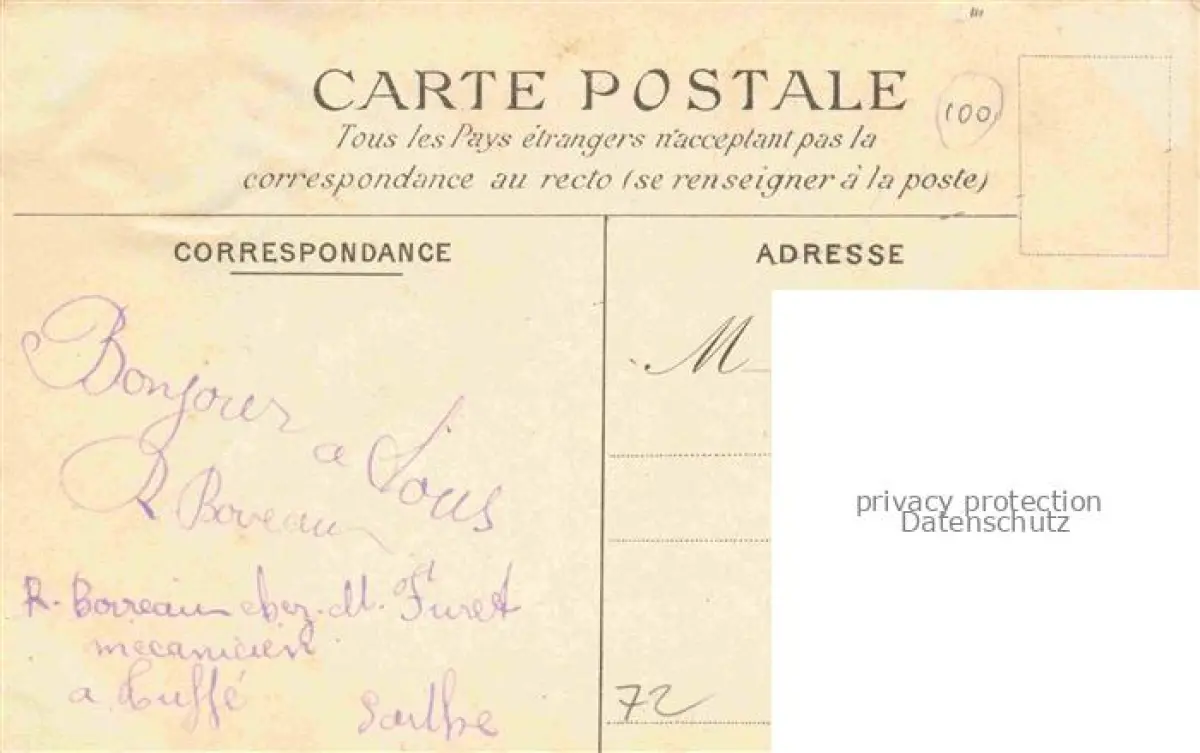 CARTE POSTALE
100
Tous les Pays étrangers n'acceptant pas la
correspondance au recto (se renseigner à la poste)
CORRESPONDANCE
ADRESSE
Bonjour
a Tous
R Boureau
M
R. Boureau chez M. Furet
mecanicien
a Tuffé
Sarthe
72
privacy protection
Datenschutz